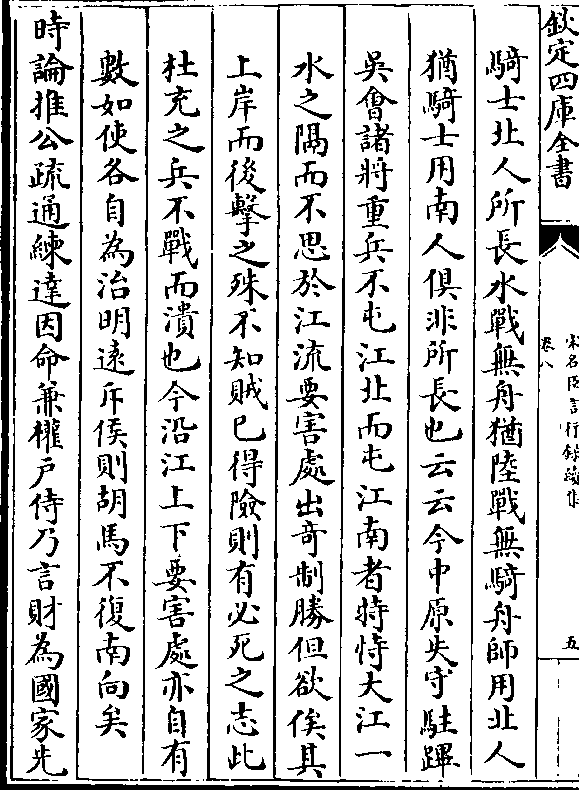 欽定四庫全書
宋名臣言行録續集
卷八
五
騎士北人所長水戰無舟猶陸戰無騎舟師用北人
猶騎士用南人俱非所長也云云今中原失守駐蹕
吳會諸將重兵不屯江北而屯江南者特恃大江一
水之隅而不思於江流要害處出奇制勝但欲俟其
上岸而後擊之殊不知賊已得險則有必死之志此
杜充之兵不戰而潰也今沿江上下要害處亦自有
數如使各自為治明遠斥侯則胡馬不復南向矣
時論推公疏通練達因命兼權戸侍乃言財為國家先